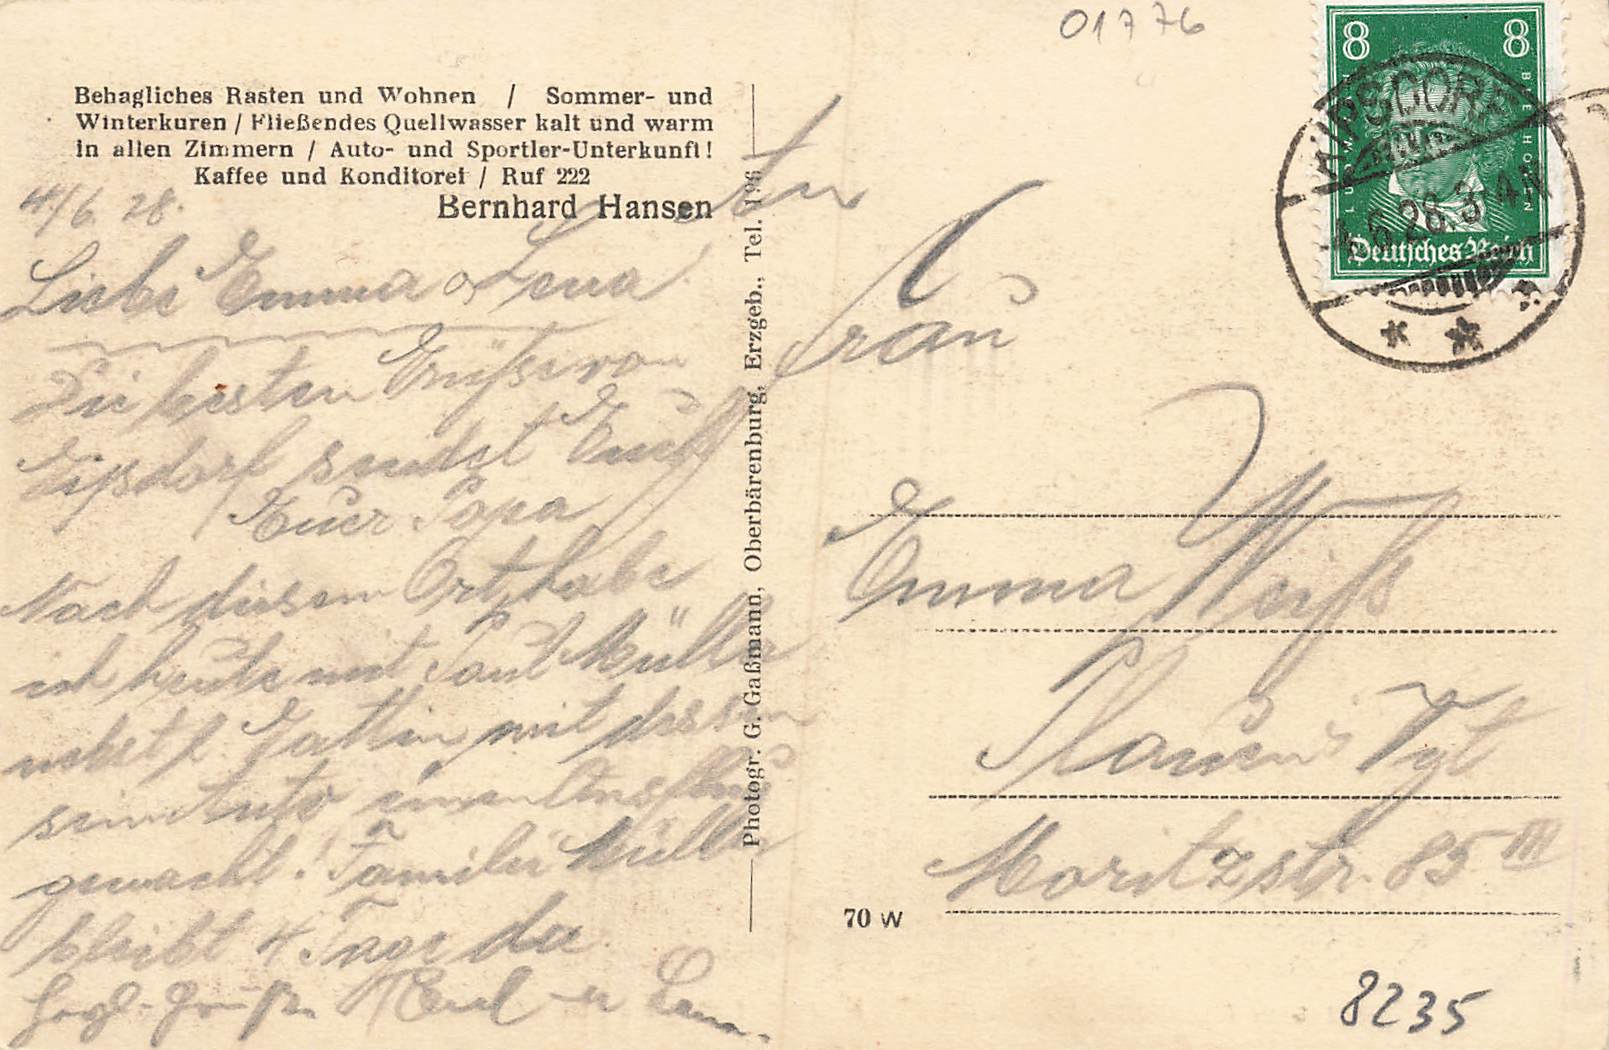 01776
Behagliches Rasten und Wohnen / Sommer- und
Winterkuren / Fließendes Quellwasser kalt und warm
in allen Zimmern / Auto- und Sportler-Unterkunft!
Kaffee und Konditorei / Ruf 222
Bernhard Hansen
4/6 28.
Liebe Emma & Lena
Die besten Grüße von
Kipsdorf sendet Euch
Euer Papa
Nach diesem Ort habe
ich heute mit Paul Müller
nebst Gattin mit dessen
Auto einen Ausflug
gemacht! Familie Müller
bleibt 4 Tage da
Photogr. G. Gaßmann, Oberbärenburg, Erzgeb., Tel. 196
An
Frau
Emma Weiß
Plauen i Vgt
Moritzstr. 85 III
70 W
8235
8 8
LUDWIG V. BEETHOVEN
Deutsches Reich
KIPSDORF
6.28.3-4N